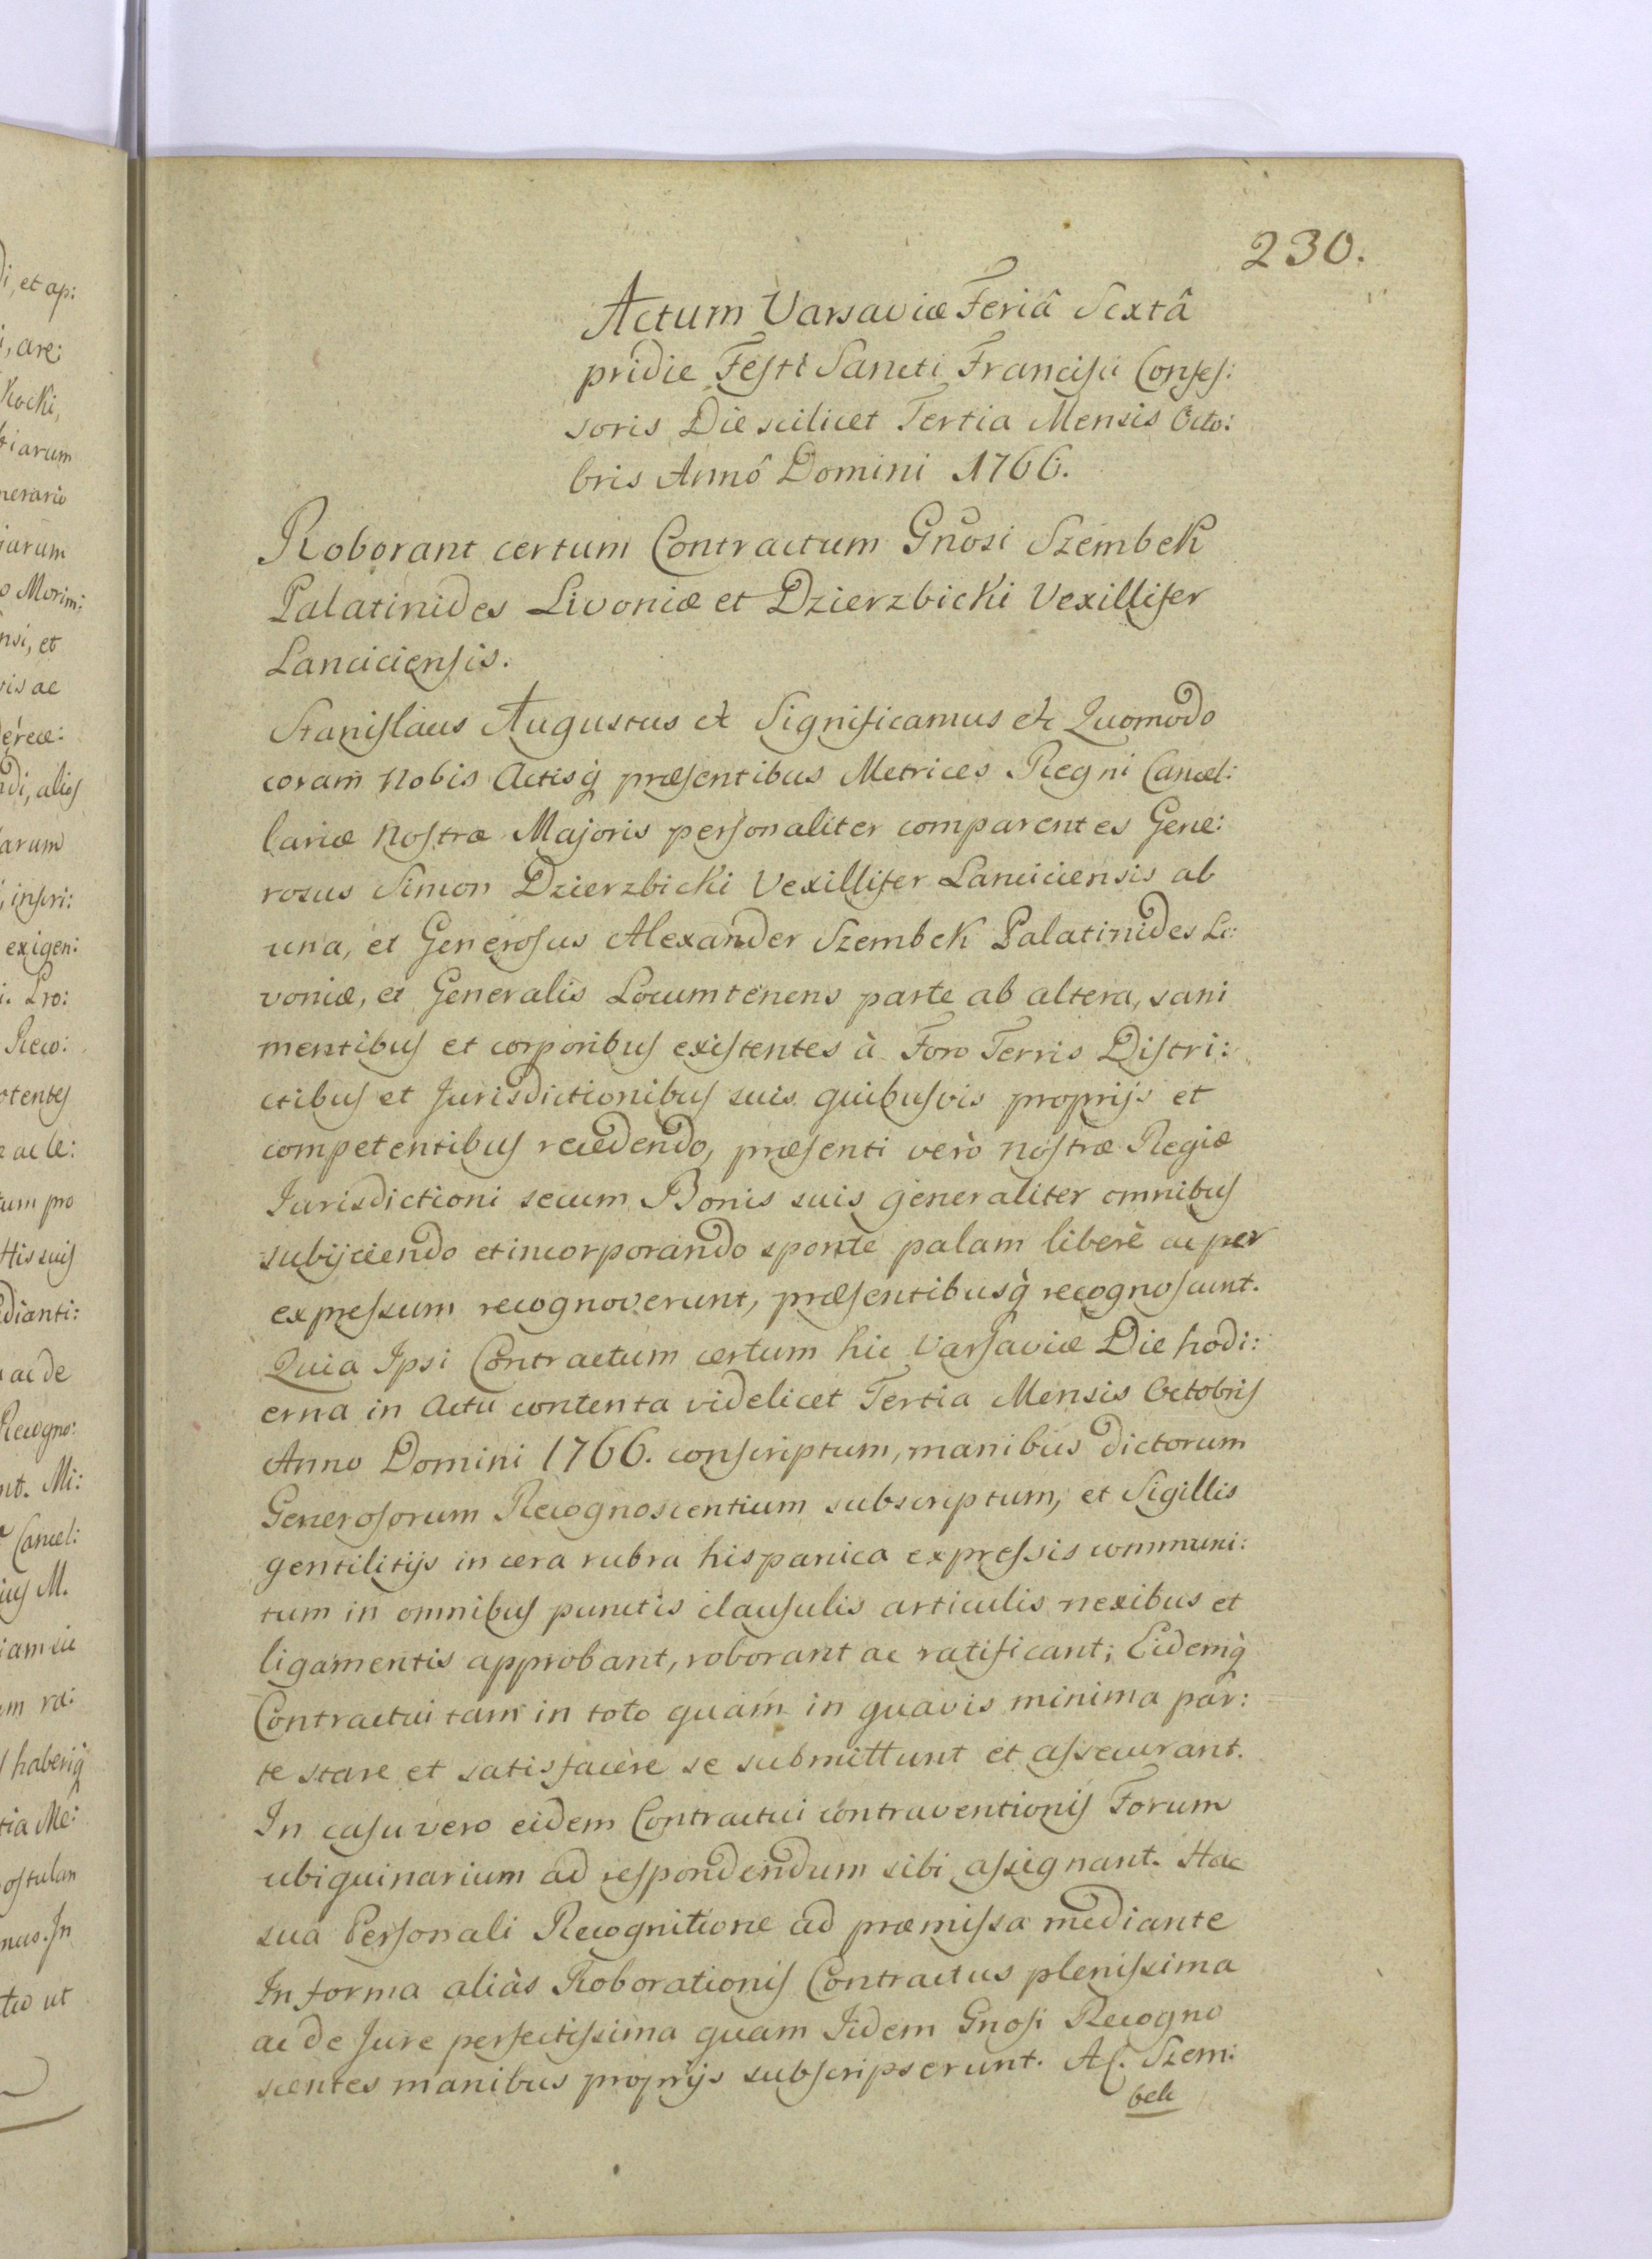 230.
Actum Varsaviæ Feriâ Sextâ
pridie Festi Sancti Francisci Confes:
soris Die scilicet Tertia Mensis Octo:
bris Annô Domini 1766.
Roborant certum Contractum Gnosi Szembek
Palatinides Livoniæ et Dzierzbicki Vexillifer
Lanciciensis.
Stanislaus Augustus etc Significamus etc Quomodo
coram nobis Actisq præsentibus Metrices Regni Cancel:
lariæ Nostræ Majoris personaliter comparentes Gene:
rosus Simon Dzierzbicki Vexillifer Lanciciensis ab
una, et Generosus Alexander Szembek Palatinides Li:
voniæ, et Generalis Locumtenens parte ab altera, sani
mentibus et corporibus existentes à Foro Terris Distri:
ctibus et Jurisdictionibus suis quibusvis proprijs et
competentibus recedendo, præsenti verò nostræ Regiæ
Jurisdictioni secum Bonis suis generaliter omnibus
subijciendo et incorporando sponte palam liberè ac per
expressum recognoverunt, præsentibusq recognoscunt.
Quia Ipsi Contractum certum hic Varsaviæ Die hodi:
erna in Actu contenta videlicet Tertia Mensis Octobris
Anno Domini 1766. conscriptum, manibus dictorum
Generosorum Recognoscentium subscriptum, et Sigillis
gentilitijs in cera rubra hispanica expressis communi:
tum in omnibus punctis clausulis articulis nexibus et
ligamentis approbant, roborant ac ratificant; Eidemq
Contractui tam in toto quàm in quavis minima par:
te stare et satisfacere se submittunt et assecurant.
In casu vero eidem Contractui contraventionis Forum
ubiquinarium ad respondendum sibi assignant. Hac
sua Personali Recognitione ad præmissa mediante
In forma aliàs Roborationis Contractus plenissima
ac de Jure perfectissima quam Iidem Gnosi Recogno
scentes manibus proprijs subscripserunt. A. Szem:
bek
di, et ap:
i, are:
Kocki,
biarum
nerario
iarum
o Morim:
nsi, et
ris ac
ndi, alios
arum
, inscri:
exigen:
i. Pro:
Reco:
otentes
ac le:
tum pro
ttis suis
edianti:
ac de
Recogno:
nt. Mi:
Cancel:
ius M.
iam sic
em ra:
haberiq
tia Me:
ostulan
nus. In
ut